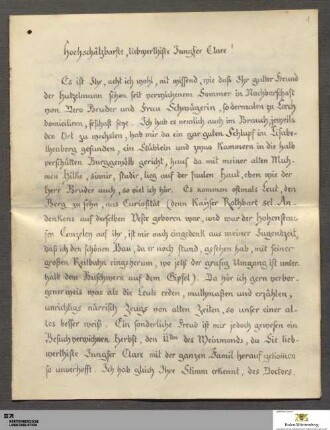 1
Hochschätzbarste, liebwertheste Jungfer Clare!
Es ist Ihr, acht ich wohl, nit wissend, wie daß Ihr guter Freund
der Hutzelmann schon seit verwichenem Sommer in Nachbarschaft
von Dero Bruder und Frau Schwägerin, so dermalen zu Lorch
domiciliren, seßhaft seye. Ich hab es nemlich auch im Brauch, jeweils
den Ort zu wechslen, hab mir da ein gar guten Schlupf im Elisabe-
thenberg gefunden, ein Stüblein und zwoo Kammern in die halb
verschütten Burggewölb gericht, haus da mit meiner alten Muh-
men Hilke, sinnir, studir, lieg auf der faulen Haut, eben wie der
Herr Bruder auch, so viel ich hör. Es kommen oftmals Leut, den
Berg zu sehn, aus Curiosität (denn Kaiser Rothbart sel. An-
denkens auf derselben Veste geboren war, und war der Hohenstau-
fen Canzelen auf ihr, ist mir auch ingedenk aus meiner Jugendzeit,
daß ich den schönen Bau, da er noch stund, gesehen hab, mit seiner
großen Reitbahn rings herum, wo jetz der grasig Umgang ist unter-
halb dem Buschwerk auf dem Gipfel). Da hör ich gern verbor-
gener weis was als die Leute reden, muthmaßen und erzählen,
unrichtigs närrisch Zeugs von alten Zeiten, so unser einer al-
les besser weiß. Ein sonderliche Freud ist mir jedoch gewesen ein
Besuch verwichnen Herbst, den 11ten des Weinmonds, da Sie lieb-
wertheste Jungfer Clare mit der ganzen Famil herauf gekomen
so unverhofft. Ich hab gleich Ihre Stimm erkennt, des Doctors,
WÜRTTEMBERGISCHE
LANDESBIBLIOTHEK
Baden-Württemberg